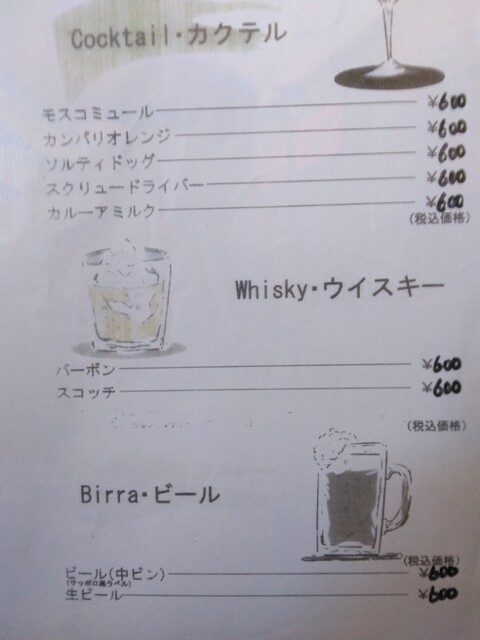 Cocktail・カクテル
モスコミュール ¥600
カンパリオレンジ ¥600
ソルティドッグ ¥600
スクリュードライバー ¥600
カルーアミルク ¥600
(税込価格)
Whisky・ウイスキー
バーボン ¥600
スコッチ ¥600
(税込価格)
Birra・ビール
(税込価格)
ビール(中ビン) ¥600
(サッポロ黒ラベル)
生ビール ¥600